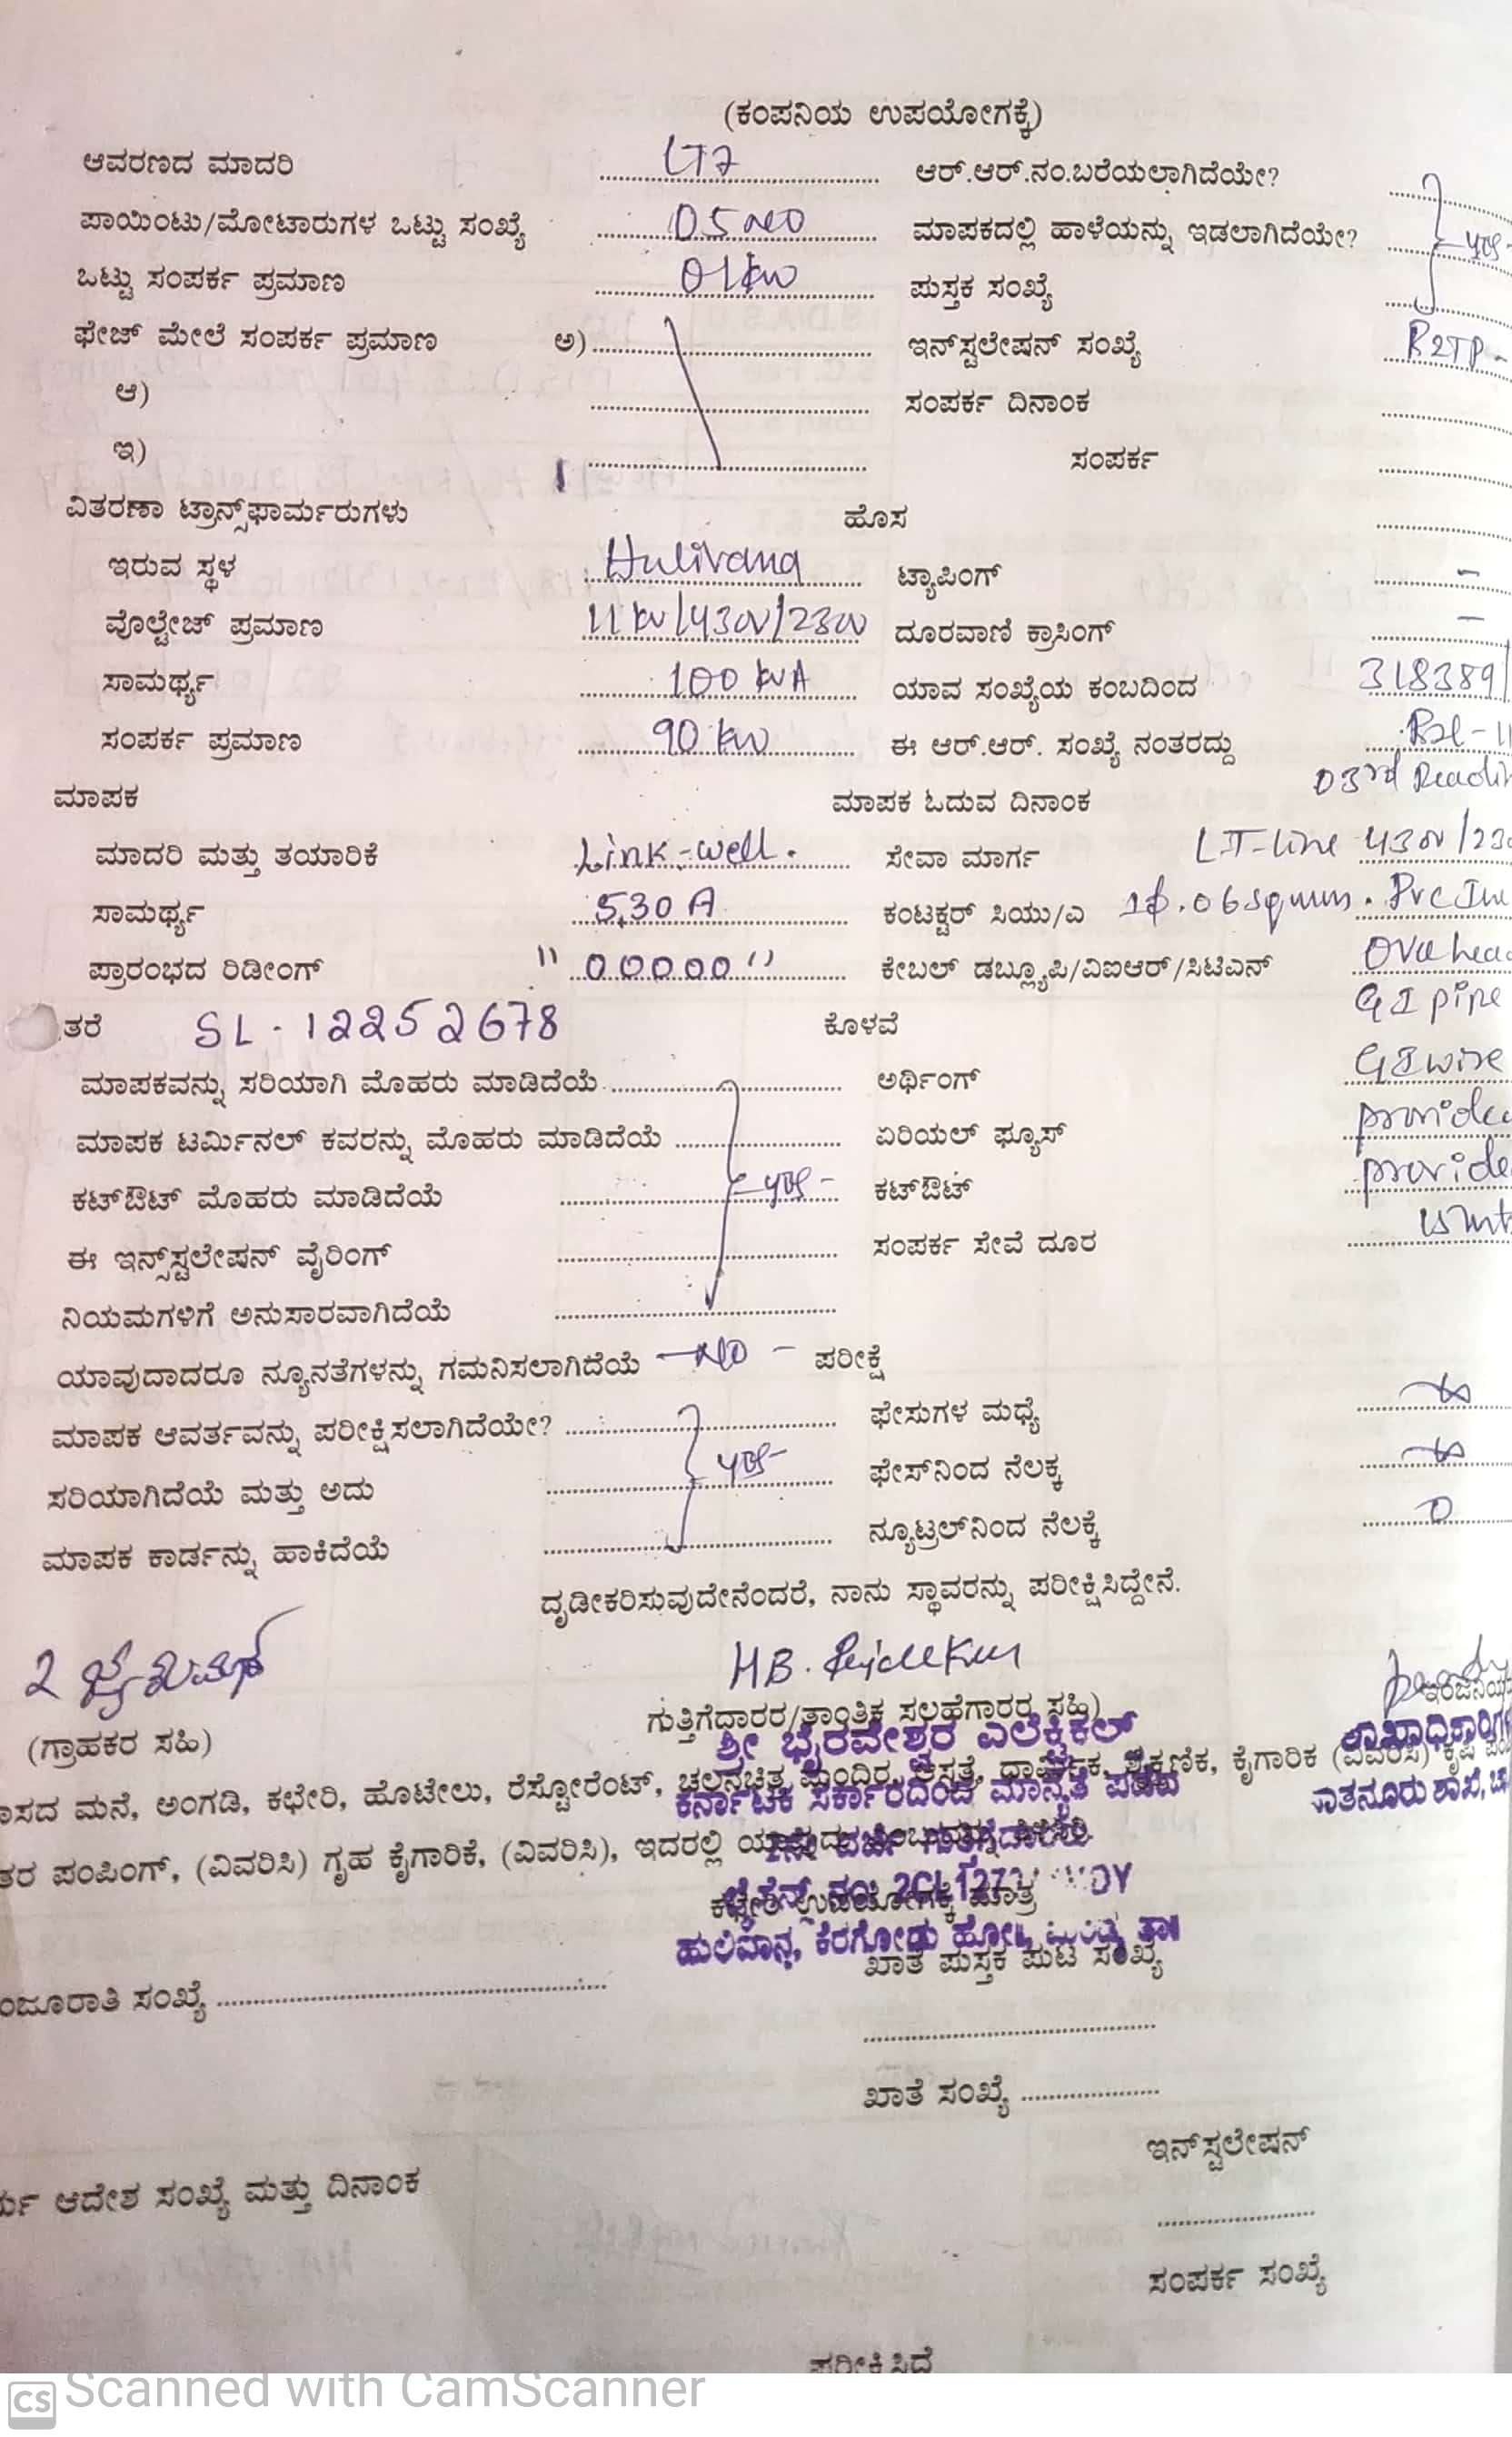 (ಕಂಪನಿಯ ಉಪಯೋಗಕ್ಕೆ)
ಆವರಣದ ಮಾದರಿ LT7 ಆರ್.ಆರ್.ನಂ.ಬರೆಯಲಾಗಿದೆಯೇ?
ಪಾಯಿಂಟು/ಮೋಟಾರುಗಳ ಒಟ್ಟು ಸಂಖ್ಯೆ 05 no ಮಾಪಕದಲ್ಲಿ ಹಾಳೆಯನ್ನು ಇಡಲಾಗಿದೆಯೇ? yes-
ಒಟ್ಟು ಸಂಪರ್ಕ ಪ್ರಮಾಣ 01 kw ಪುಸ್ತಕ ಸಂಖ್ಯೆ
ಫೇಜ್ ಮೇಲೆ ಸಂಪರ್ಕ ಪ್ರಮಾಣ ಅ) ಇನ್‌ಸ್ಟಲೇಷನ್ ಸಂಖ್ಯೆ
ಆ) ಸಂಪರ್ಕ ದಿನಾಂಕ
ಇ) ಸಂಪರ್ಕ
ವಿತರಣಾ ಟ್ರಾನ್ಸ್‌ಫಾರ್ಮರುಗಳು ಹೊಸ
ಇರುವ ಸ್ಥಳ Hulivana ಟ್ಯಾಪಿಂಗ್ -
ವೊಲ್ಟೇಜ್ ಪ್ರಮಾಣ 11 kv/430v/230v ದೂರವಾಣಿ ಕ್ರಾಸಿಂಗ್ -
ಸಾಮರ್ಥ್ಯ 100 kVA ಯಾವ ಸಂಖ್ಯೆಯ ಕಂಬದಿಂದ 318389/
ಸಂಪರ್ಕ ಪ್ರಮಾಣ 90 kw ಈ ಆರ್.ಆರ್. ಸಂಖ್ಯೆ ನಂತರದ್ದು
ಮಾಪಕ ಮಾಪಕ ಓದುವ ದಿನಾಂಕ 03rd Readin
ಮಾದರಿ ಮತ್ತು ತಯಾರಿಕೆ Link-well. ಸೇವಾ ಮಾರ್ಗ LT-Line 430v/230
ಸಾಮರ್ಥ್ಯ 5,30 A ಕಂಟಕ್ಟರ್ ಸಿಯು/ಎ 1ϕ.06 sqmm. Pvc
ಪ್ರಾರಂಭದ ರಿಡೀಂಗ್ "00000" ಕೇಬಲ್ ಡಬ್ಲ್ಯೂಪಿ/ವಿಐಆರ್/ಸಿಟಿಎನ್ Over head
ತರೆ SL-12252678 ಕೊಳವೆ GI pipe
ಮಾಪಕವನ್ನು ಸರಿಯಾಗಿ ಮೊಹರು ಮಾಡಿದೆಯೆ ಅರ್ಥಿಂಗ್ GI wire
ಮಾಪಕ ಟರ್ಮಿನಲ್ ಕವರನ್ನು ಮೊಹರು ಮಾಡಿದೆಯೆ ಏರಿಯಲ್ ಫ್ಯೂಸ್ provided
ಕಟ್‌ಔಟ್ ಮೊಹರು ಮಾಡಿದೆಯೆ yes- ಕಟ್‌ಔಟ್ provide
ಈ ಇನ್ಸ್‌ಸ್ಟಲೇಷನ್ ವೈರಿಂಗ್ ಸಂಪರ್ಕ ಸೇವೆ ದೂರ 15 mt
ನಿಯಮಗಳಿಗೆ ಅನುಸಾರವಾಗಿದೆಯೆ
ಯಾವುದಾದರೂ ನ್ಯೂನತೆಗಳನ್ನು ಗಮನಿಸಲಾಗಿದೆಯೆ -No- ಪರೀಕ್ಷೆ
ಮಾಪಕ ಆವರ್ತವನ್ನು ಪರೀಕ್ಷಿಸಲಾಗಿದೆಯೇ? ಫೇಸುಗಳ ಮಧ್ಯೆ
ಸರಿಯಾಗಿದೆಯೆ ಮತ್ತು ಅದು yes- ಫೇಸ್‌ನಿಂದ ನೆಲಕ್ಕ
ಮಾಪಕ ಕಾರ್ಡನ್ನು ಹಾಕಿದೆಯೆ ನ್ಯೂಟ್ರಲ್‌ನಿಂದ ನೆಲಕ್ಕೆ 0
ದೃಡೀಕರಿಸುವುದೇನೆಂದರೆ, ನಾನು ಸ್ಥಾವರನ್ನು ಪರೀಕ್ಷಿಸಿದ್ದೇನೆ.
HB.
(ಗ್ರಾಹಕರ ಸಹಿ) ಗುತ್ತಿಗೆದಾರರ/ತಾಂತ್ರಿಕ ಸಲಹೆಗಾರರ ಸಹಿ) ಇಂಜಿನಿಯ
ಶ್ರೀ ಭೈರವೇಶ್ವರ ಎಲೆಕ್ಟ್ರಿಕಲ್ ಶಾಖಾಧಿಕಾರಿಗಳ
ಾಸದ ಮನೆ, ಅಂಗಡಿ, ಕಛೇರಿ, ಹೊಟೇಲು, ರೆಸ್ಟೋರೆಂಟ್, ಚಲನಚಿತ್ರ ಮಂದಿರ, ಆಸ್ಪತ್ರೆ, ಧಾರ್ಮಿಕ, ಶೈಕ್ಷಣಿಕ, ಕೈಗಾರಿಕ (ವಿವರಿಸಿ) ಕೃಷಿ
ಕರ್ನಾಟಕ ಸರ್ಕಾರದಿಂದ ಮಾನ್ಯತೆ ಪಡೆದ ಸಾತನೂರು ಶಾಖೆ,
ತರ ಪಂಪಿಂಗ್, (ವಿವರಿಸಿ) ಗೃಹ ಕೈಗಾರಿಕೆ, (ವಿವರಿಸಿ), ಇದರಲ್ಲಿ
ಕಛೇರಿ ಉಪಯೋಗಕ್ಕೆ ಮಾತ್ರ
ಹುಲಿವಾನ, ಕೆರಗೋಡು ಹೋ॥
ಖಾತೆ ಪುಸ್ತಕ ಪುಟ ಸಂಖ್ಯೆ
ಂಜೂರಾತಿ ಸಂಖ್ಯೆ
ಖಾತೆ ಸಂಖ್ಯೆ
ಇನ್‌ಸ್ಟಲೇಷನ್
ರ್ಯ ಆದೇಶ ಸಂಖ್ಯೆ ಮತ್ತು ದಿನಾಂಕ
ಸಂಪರ್ಕ ಸಂಖ್ಯೆ
ಪರೀಕ್ಷಿಸಿದೆ
CS Scanned with CamScanner